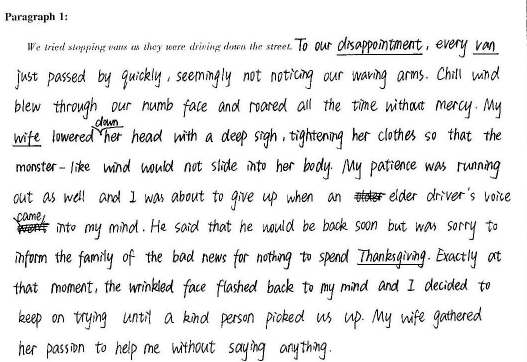 Paragraph 1:
We tried stopping vans as they were driving down the street. To our disappointment, every van
just passed by quickly, seemingly not noticing our waving arms. Chill wind
blew through our numb face and roared all the time without mercy. My
wife lowered down her head with a deep sigh, tightening her clothes so that the
monster-like wind would not slide into her body. My patience was running
out as well and I was about to give up when an elder driver's voice
came into my mind. He said that he would be back soon but was sorry to
inform the family of the bad news for nothing to spend Thanksgiving. Exactly at
that moment, the wrinkled face flashed back to my mind and I decided to
keep on trying until a kind person picked us up. My wife gathered
her passion to help me without saying anything.